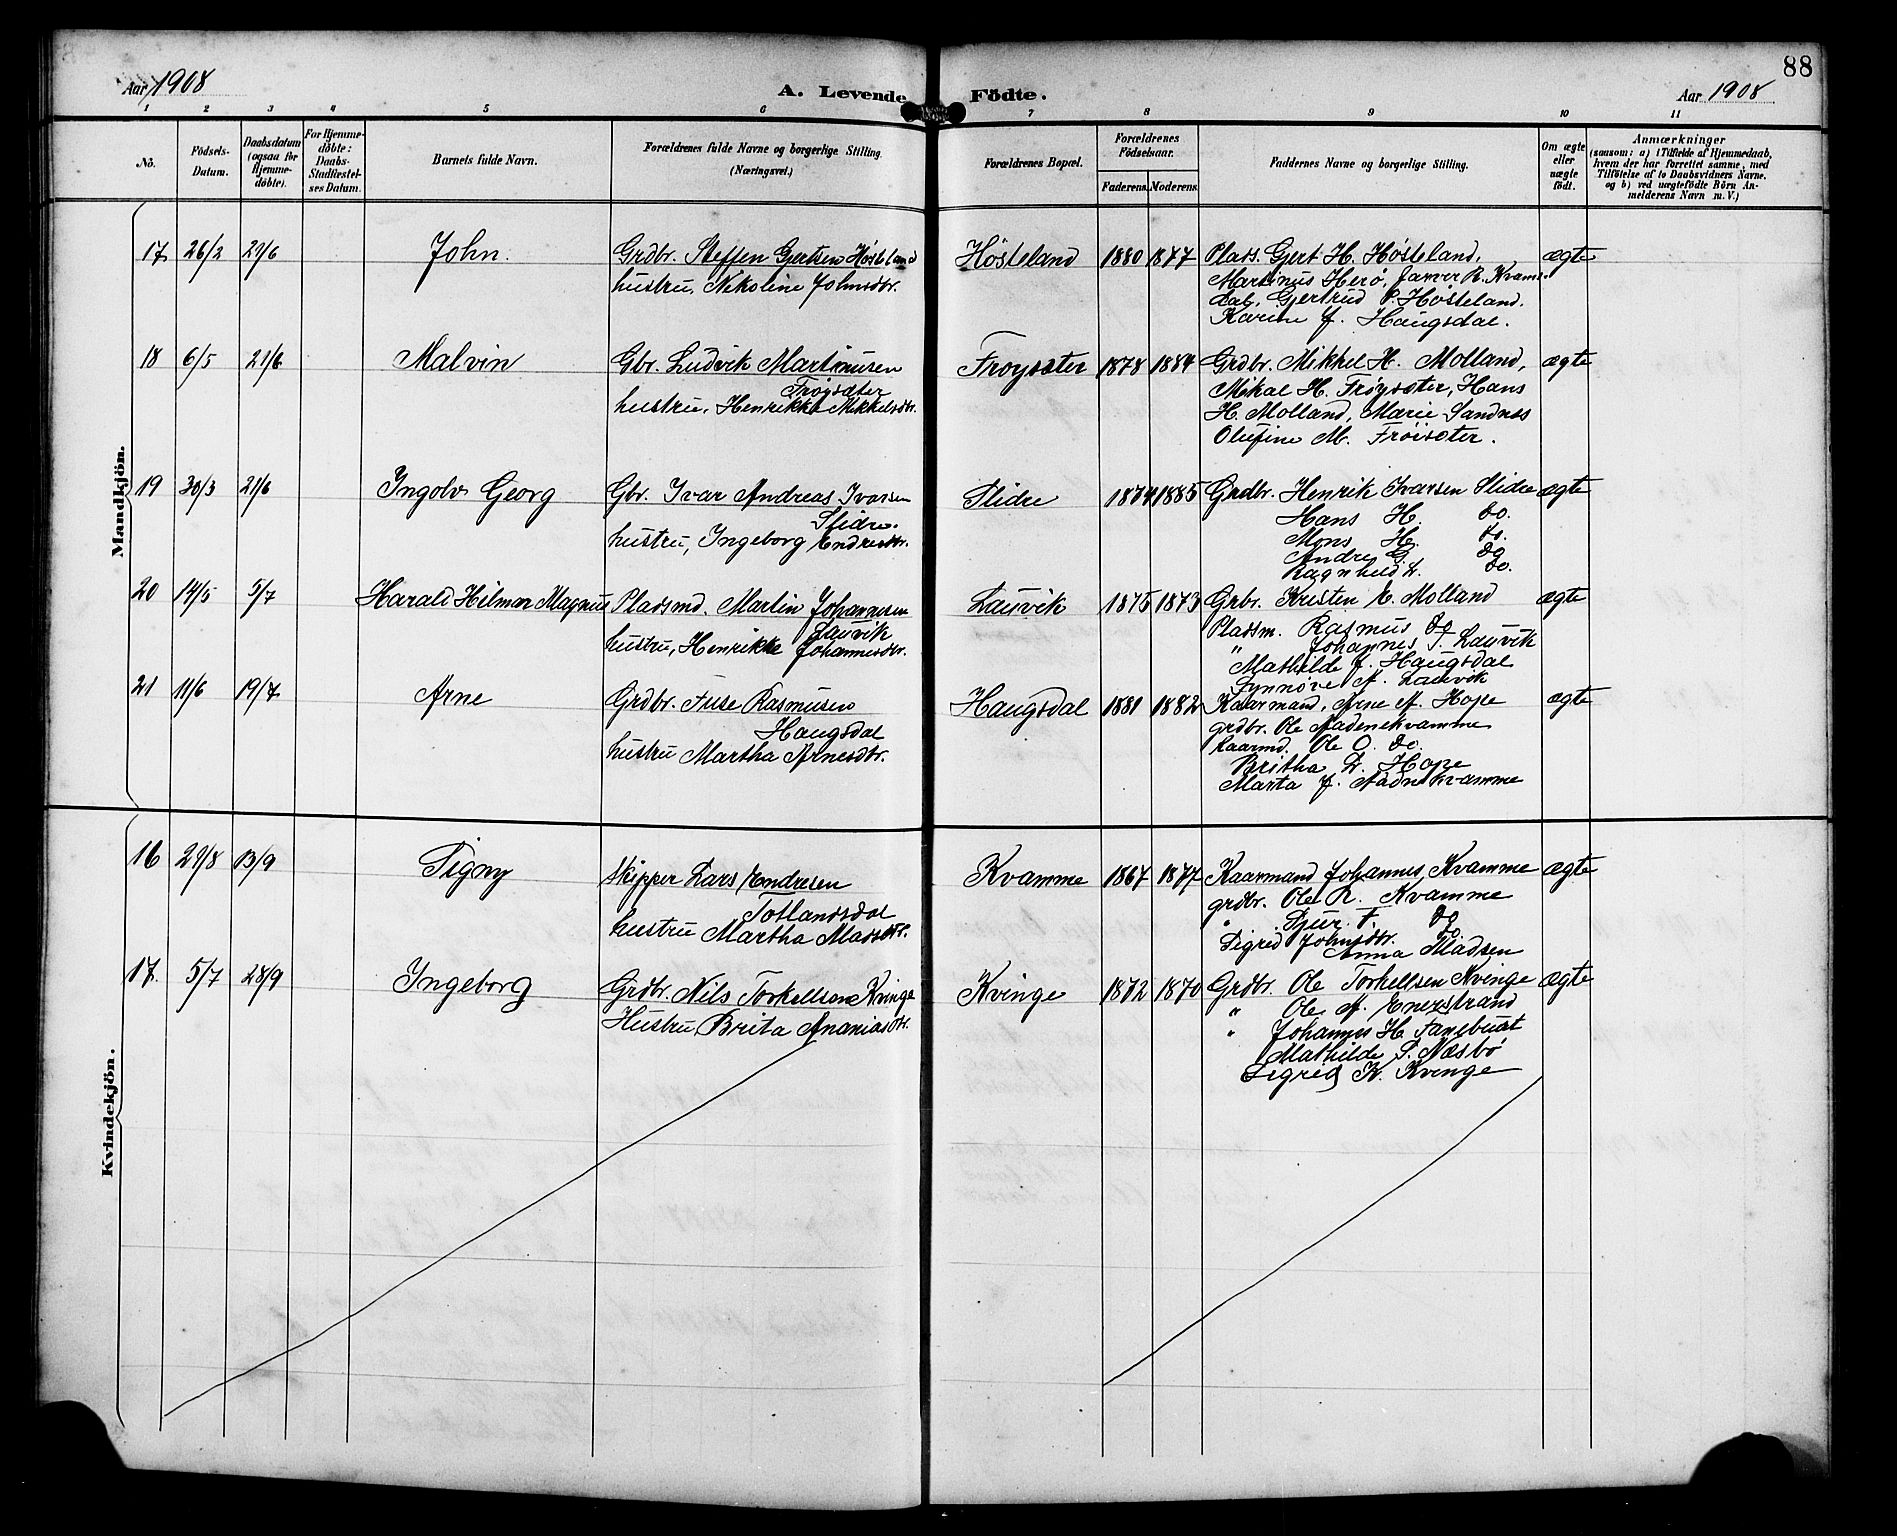 88
Aar 1908 A. Levende Födte. Aar 1908
1 2 3 4 5 6 7 8 9 10 11
No. Födsels-Datum. Daabsdatum (ogsaa for Hjemme-döbte). For Hjemme-döbte: Daabs-Stadfæstel-ses Datum. Barnets fulde Navn. Forældrenes fulde Navne og borgerlige Stilling. (Næringsvei.) Forældrenes Bopæl. Forældrenes Födselsaar. Faderens. Moderens. Faddernes Navne og borgerlige Stilling. Om ægte eller uægte födt. Anmærkninger (saasom: a) i Tilfælde af Hjemmedaab, hvem der har forrettet samme, med Tilföielse af to Daabsvidners Navne, og b) ved uægtefödte Börn An-melderens Navn m. V.)
Mandkjön.
17 26/2 21/6 John. Grdbr. Steffen Gjertsen Høsteland Høsteland 1880 1877 Plads. Gjert H. Høsteland, ægte
hustru, Nikoline Johnsdtr. Martinus Herø, R. Kvamme
Gjertrud P. Høsteland.
Karine J. Haugsdal.
18 6/5 21/6 Malvin Gbr. Ludvik Martinusen Frøysæter 1878 1884 Grdbr. Mikkel H. Molland, ægte
Frøysæter Mikal H. Frøysæter, Hans
hustru, Henrikka Mikkelsdtr. H. Molland, Marie Sandnæs
Olufine M. Frøisæter.
19 30/3 21/6 Ingolv Georg Gbr. Ivar Andreas Ivarsen Slidre 1874 1885 Grdbr. Henrik Ivarsen Slidre ægte
Slidre. Hans H. do.
hustru, Ingeborg Endresdtr. Mons H. do.
Andre G. do
Ragnhild L. do.
20 14/5 5/7 Harald Hilmar Magnus Pladsmd. Martin Johannesen Lauvik 1875 1873 Grbr. Kristen E. Molland ægte
Lauvik Pladsm. Rasmus do
hustru, Henrikke Johannesdtr. " Johannes T. Lauvik
Mathilde J. Haugsdal
Synnøve A. Lauvik
21 11/6 19/7 Arne Grdbr. Fuse Rasmusen Haugsdal 1881 1882 Kaarmand, Arne A. Hope ægte
Haugsdal grdbr. Ole Aadnekvamme
hustru Martha Arnesdtr. kaarmd. Ole O. do.
Britha L. Hope
Marta J. Aadnekvamme
Kvindekjön.
16 29/8 13/9 Signy Skipper Lars Endresen Kvamme 1867 1877 Kaarmand Johannes Kvamme ægte
Totlandsdal grdbr. Ole R. Kvamme
hustru Martha Madsdtr. " Sjur F. do
Sigrid Johnsdtr. do
Anna Madsen
17. 5/7 28/9 Ingeborg Grdbr. Nils Torkellsen Kvinge Kvinge 1872 1870 Grdbr. Ole Torkellsen Kvinge ægte
Hustru, Brita Ananiasdtr. " Ole A. Enerstrand
" Johannes H. Fanebust
Mathilde S. Næsbø
Sigrid K. Kvinge